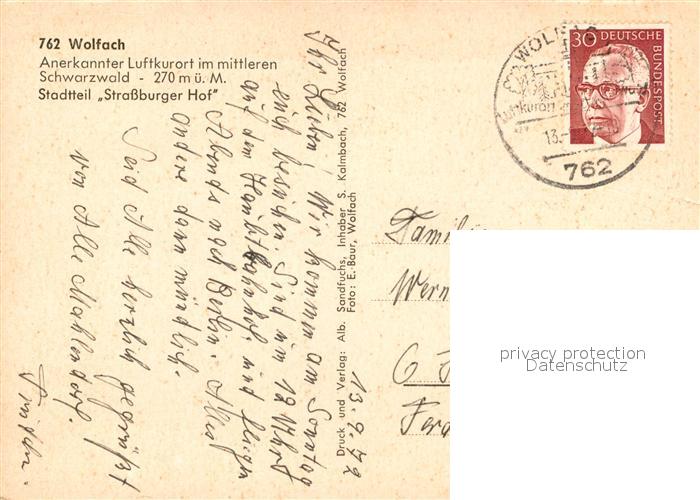 762 Wolfach
Anerkannter Luftkurort im mittleren
Schwarzwald - 270 m ü. M.
Stadtteil „Straßburger Hof"
13.9.72
Ihr Lieben, Wir kommen am Sonntag
euch besuchen. Sind um 12 Uhr
auf dem Hauptbahnhof und fliegen
Abends nach Berlin. Alles
andere dann mündlich.
Seid Alle herzlich gegrüßt
von Alle Mahlendorf.
Druck und Verlag: Alb. Sandfuchs, Inhaber S. Kalmbach, 762 Wolfach
Foto: E. Baur, Wolfach
30 DEUTSCHE BUNDESPOST
WOLFA
Luftkurort
13.
762
Famil
Wern
6
Ferd
privacy protection
Datenschutz